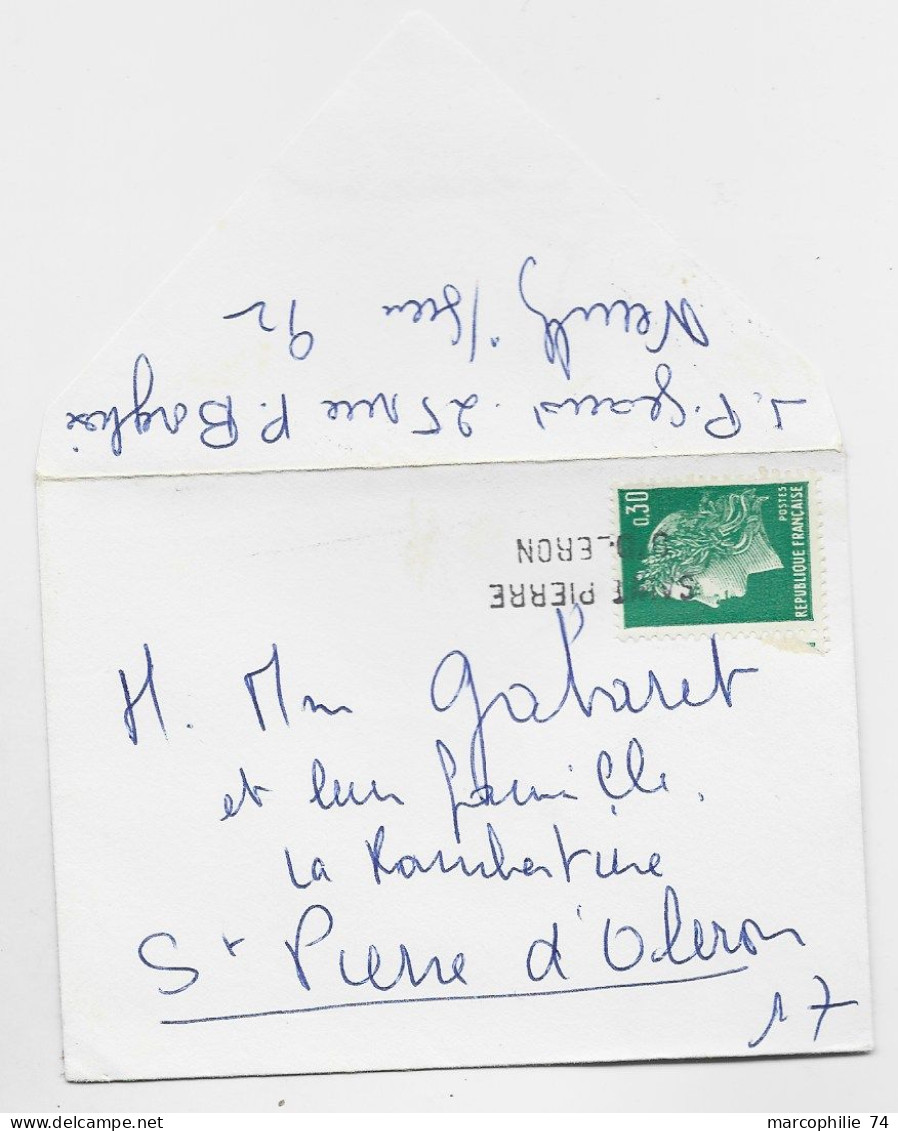 25 rue P. Borghèse
Neuilly s/Seine 92
0,30
POSTES
REPUBLIQUE FRANÇAISE
SAINT PIERRE
D'OLERON
M. Mme Gabaret
et leur famille,
La Rambertière
St Pierre d'Oleron
17
marcophilie 74